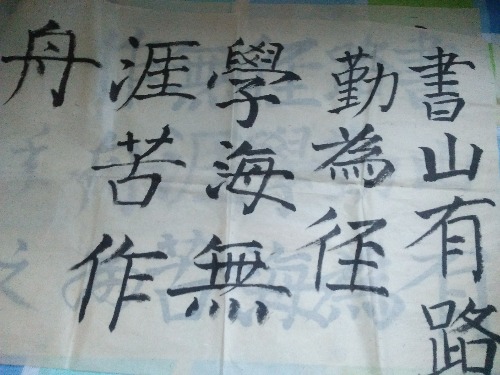 書山有路
勤為徑
學海無
涯苦作
舟